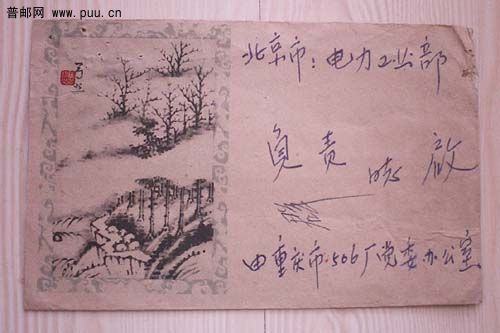 普邮网 www.puu.cn
北京市：电力工业部
负责 启
由重庆市·506厂党委办公室